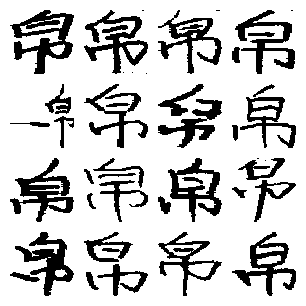 帛帛帛帛
帛帛帛帛
帛帛帛帛
帛帛帛帛